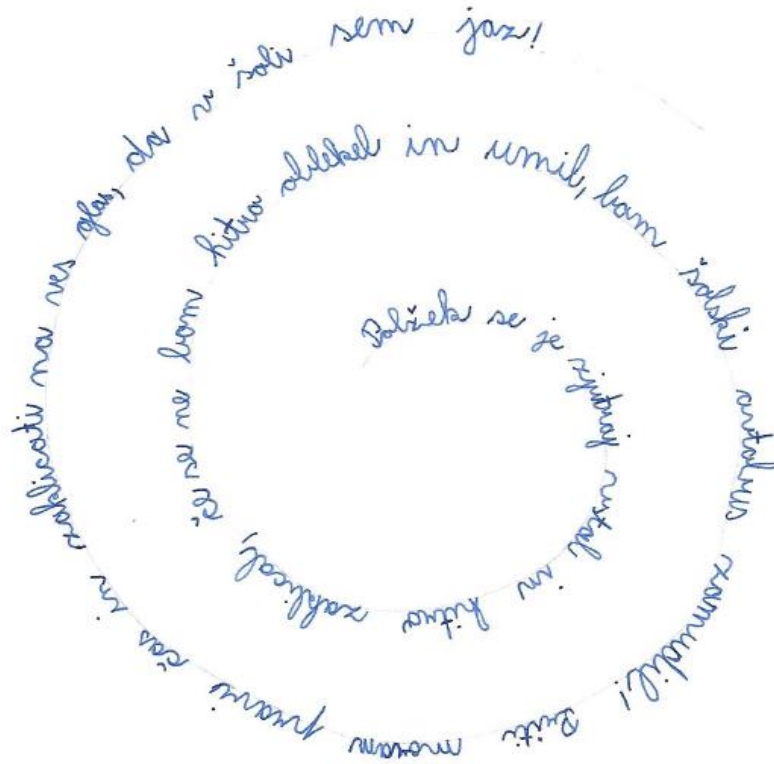 Polžek se je zjutraj vstal in hitro zaklical, če se ne bom hitro oblekel in umil, bom šolski avtobus zamudil! Priti moram pravi čas in zaklicati na ves glas, da v šoli sem jaz!